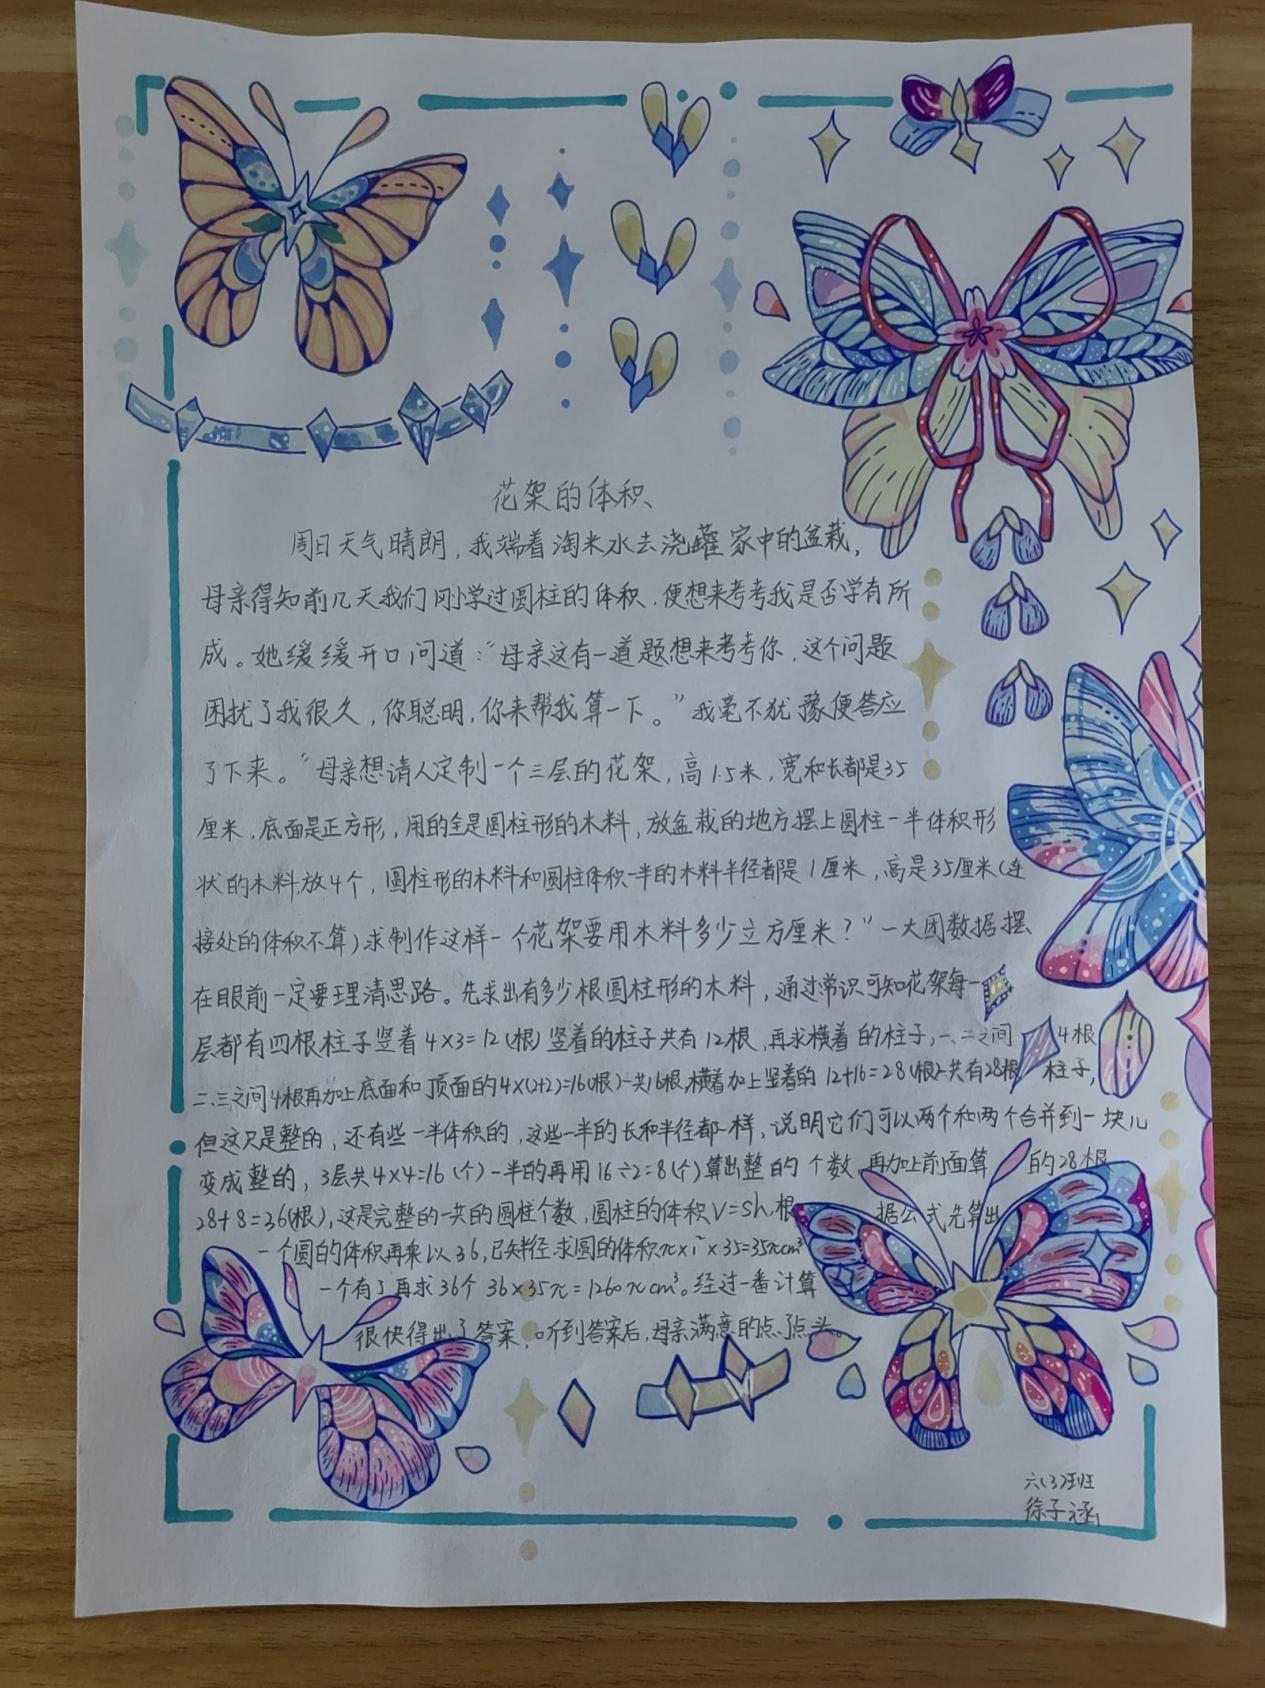 花架的体积
周日天气晴朗，我端着淘米水去浇罐家中的盆栽，
母亲得知前几天我们刚学过圆柱的体积，便想来考考我是否学有所
成。她缓缓开口问道：“母亲这有一道题想来考考你，这个问题
困扰了我很久，你聪明，你来帮我算一下。”我毫不犹豫便答应
了下来。“母亲想请人定制一个三层的花架，高1.5米，宽和长都是35
厘米，底面是正方形，用的全是圆柱形的木料，放盆栽的地方摆上圆柱一半体积形
状的木料放4个，圆柱形的木料和圆柱体积一半的木料半径都是1厘米，高是35厘米（连
接处的体积不算）求制作这样一个花架要用木料多少立方厘米？”一大团数据摆
在眼前一定要理清思路。先求出有多少根圆柱形的木料，通过常识可知花架每一
层都有四根柱子竖着4×3=12（根）竖着的柱子共有12根，再求横着的柱子，一、二之间4根
二、三之间4根再加上底面和顶面的4×(2+2)=16(根)一共16根，横着加上竖着的12+16=28(根)共有28根柱子，
但这只是整的，还有些一半体积的，这些一半的长和半径都一样，说明它们可以两个和两个合并到一块儿
变成整的，3层共4×4=16（个）一半的再用16÷2=8(个)算出整的个数，再加上前面算的28根
28+8=36(根)，这是完整的一共的圆柱个数，圆柱的体积V=sh，根据公式先算出
一个圆的体积再乘以36，已知半径求圆的体积π×1²×35=35πcm³
一个有了再求36个 36×35π=1260πcm³。经过一番计算
很快得出了答案，听到答案后，母亲满意的点了点头。
六(3)班
徐子涵